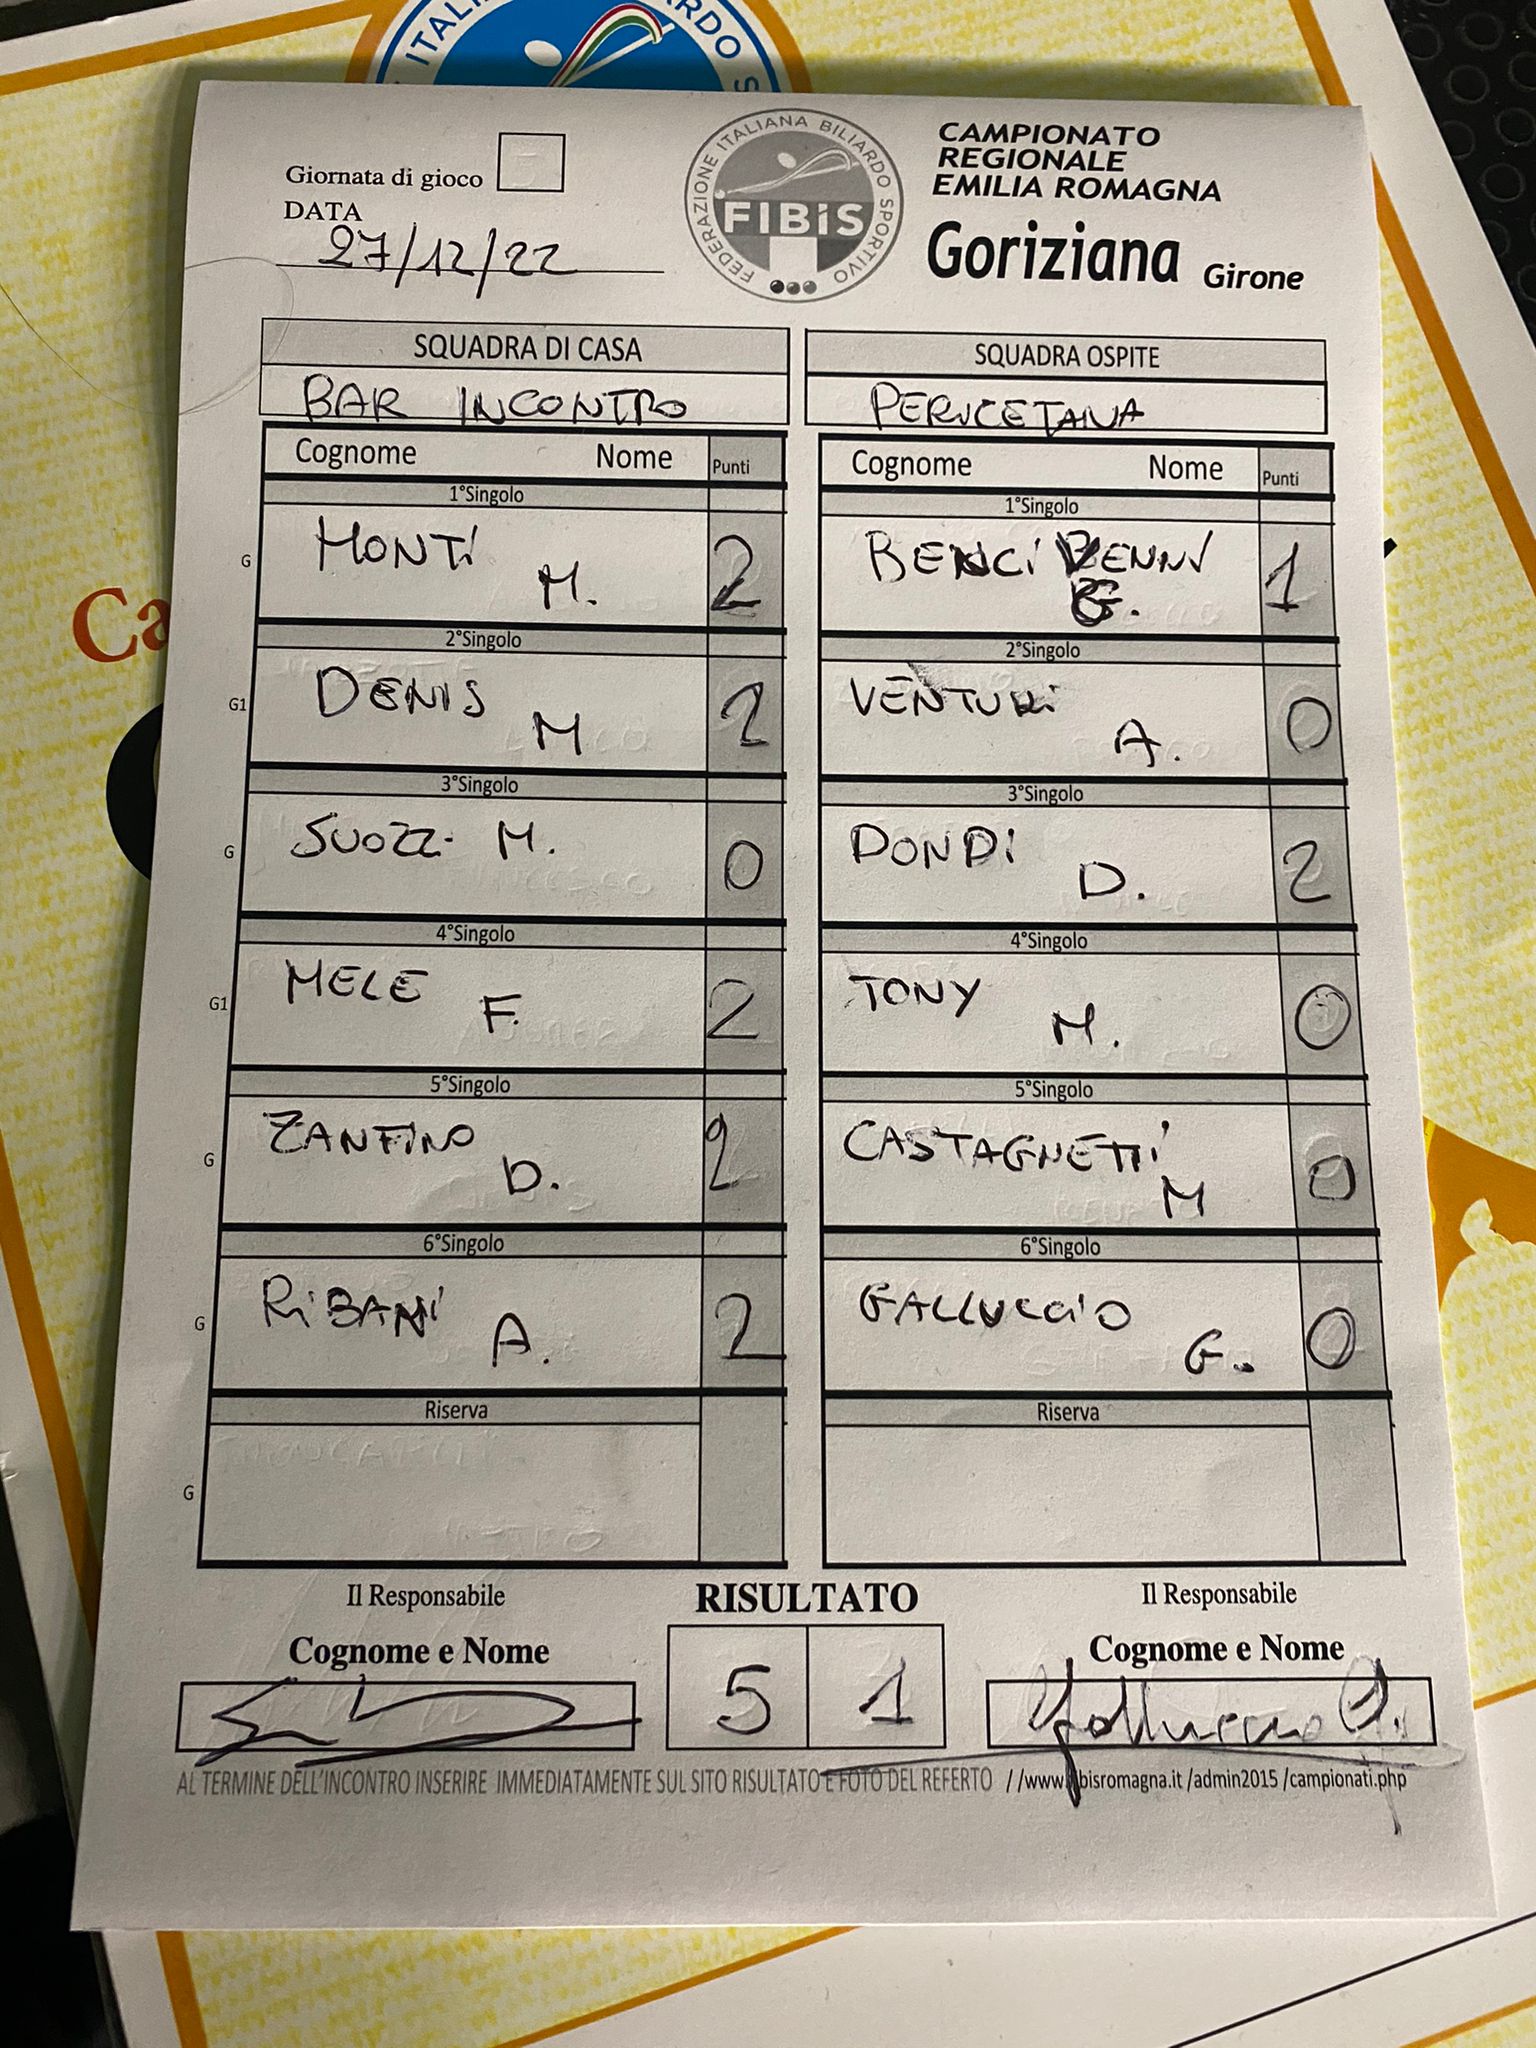 ITALIANA BILIARDO S
Giornata di gioco
DATA
27/12/22
FEDERAZIONE ITALIANA BILIARDO SPORTIVO
FIBiS
CAMPIONATO
REGIONALE
EMILIA ROMAGNA
Goriziana Girone
SQUADRA DI CASA
BAR INCONTRO
Cognome Nome Punti
1°Singolo
G MONTI M. 2
2°Singolo
G1 DENIS M 2
3°Singolo
G SUOZZI M. 0
4°Singolo
G1 MELE F. 2
5°Singolo
G ZANFINO D. 2
6°Singolo
G RiBANI A. 2
Riserva
G
SQUADRA OSPITE
Cognome Nome Punti
1°Singolo
BENCIVENNI G. 1
2°Singolo
VENTURi A. 0
3°Singolo
DONDi D. 2
4°Singolo
TONY M. 0
5°Singolo
CASTAGNETTi M 0
6°Singolo
GALLUCCiO G. 0
Riserva
Il Responsabile
Cognome e Nome
RISULTATO
5 1
Il Responsabile
Cognome e Nome
AL TERMINE DELL'INCONTRO INSERIRE IMMEDIATAMENTE SUL SITO RISULTATO E FOTO DEL REFERTO //www.fibisromagna.it /admin2015 /campionati.php
Ca